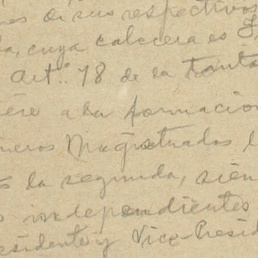 de sus respectivos
cuya cabecera es
Art. 78 de la
a la formacion
Magistrados
la segunda, sien
independientes
esidente y Vice-Presid